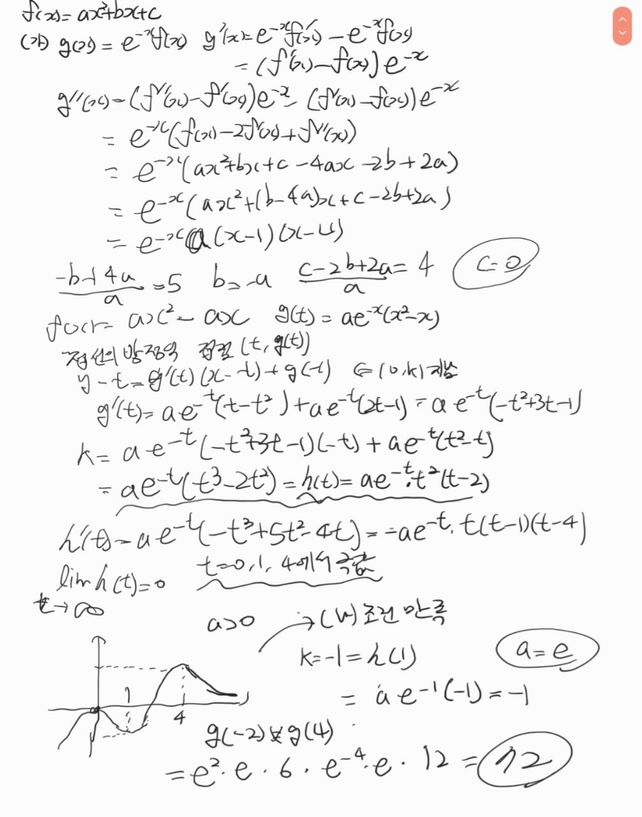 f(x)=ax²+bx+c
(가) g(x)=e⁻ˣf(x) g'(x)=e⁻ˣf'(x)-e⁻ˣf(x)
=(f'(x)-f(x))e⁻ˣ
g''(x)=(f''(x)-f'(x))e⁻ˣ-(f'(x)-f(x))e⁻ˣ
=e⁻ˣ(f(x)-2f'(x)+f''(x))
=e⁻ˣ(ax²+bx+c-4ax-2b+2a)
=e⁻ˣ(ax²+(b-4a)x+c-2b+2a)
=e⁻ˣa(x-1)(x-4)
(-b+4a)/a=5 b=-a (c-2b+2a)/a=4 c=0
f(x)=ax²-ax g(t)=ae⁻ˣ(x²-x)
접선의 방정식 접점 (t, g(t))
y-t=g'(t)(x-t)+g(t) ⇐(0,k) 지남
g'(t)=ae⁻ᵗ(t-t²)+ae⁻ᵗ(2t-1)=ae⁻ᵗ(-t²+3t-1)
k=ae⁻ᵗ(-t²+3t-1)(-t)+ae⁻ᵗ(t²-t)
=ae⁻ᵗ(t³-2t²)=h(t)=ae⁻ᵗ·t²(t-2)
h'(t)=ae⁻ᵗ(-t³+5t²-4t)=-ae⁻ᵗ·t(t-1)(t-4)
lim h(t)=0 t=0, 1, 4에서 극값
t→∞
a>0 → (나)조건 만족
k=-1=h(1) a=e
=ae⁻¹(-1)=-1
1 4
g(-2)×g(4)
=e²·e·6·e⁻⁴·e·12=72